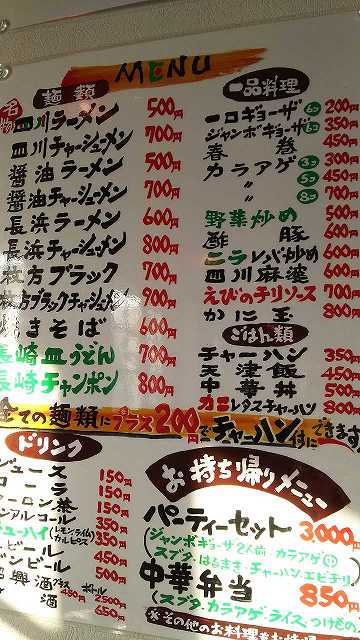 MENU
名物
麺類
四川ラーメン 500円
四川チャーシューメン 700円
醤油ラーメン 500円
醤油チャーシューメン 700円
長浜ラーメン 600円
長浜チャーシューメン 800円
枚方ブラック 700円
枚方ブラックチャーシューメン 900円
焼きそば 600円
長崎皿うどん 700円
長崎チャンポン 800円
一品料理
一口ギョーザ 6コ 200円
ジャンボギョーザ 6コ 350円
春巻 450円
カラアゲ 3コ 300円
〃 5コ 450円
〃 8コ 700円
野菜炒め 500円
酢豚 600円
ニラレバ炒め 600円
四川麻婆 600円
えびのチリソース 700円
かに玉 800円
ごはん類
チャーハン 350円
天津飯 450円
中華丼 500円
カニレタスチャーハン 800円
全ての麺類にプラス200円でチャーハン付にできます
ドリンク
ジュース 150円
コーラ 150円
ウーロン茶 150円
ノンアルコール 350円
チューハイ(レモン・ライム カルピス) 350円
ビール 450円
ビンビール 500円
紹興酒 グラス 450円 ボトル 2,500円
酒 650円
お持ち帰りメニュー
パーティーセット 3,000円
(ジャンボギョーザ2人前 カラアゲ
スブタ・はるまき・チャーハン・エビチリ)
中華弁当 850円
(スブタ・カラアゲ・ライス・つけもの
※その他のお料理も